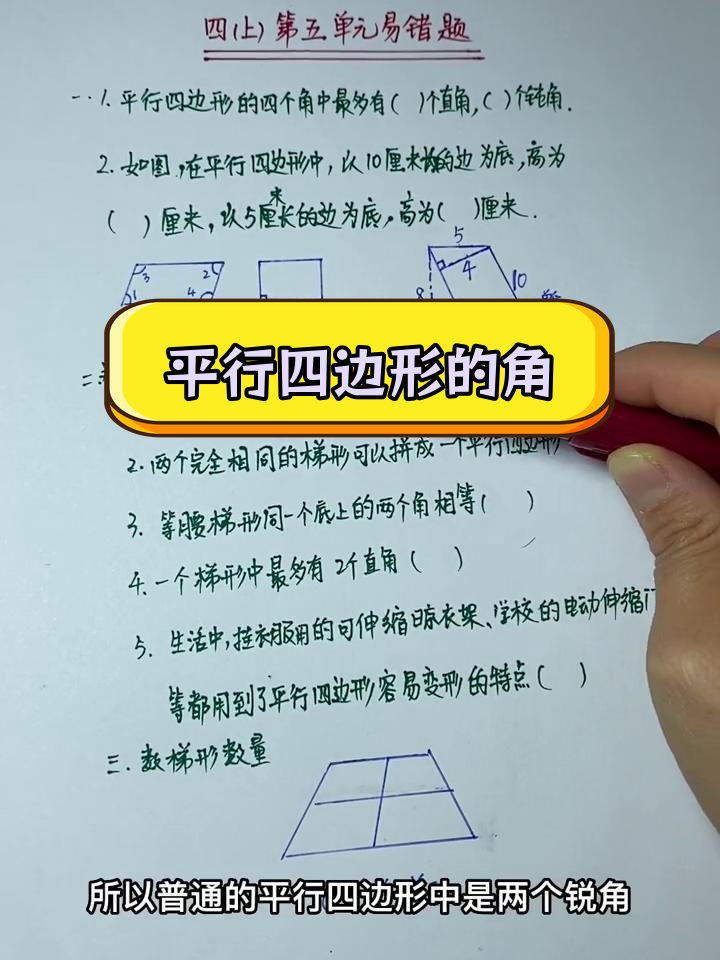 四(上)第五单元易错题
一.1.平行四边形的四个角中最多有( )个直角,( )个钝角.
2.如图,在平行四边形中,以10厘米长的边为底,高为
( )厘米,以5厘米长的边为底,高为( )厘米.
5
3 2 4 10
1 4 8
平行四边形的角
二.
2.两个完全相同的梯形可以拼成一个平行四边形
3.等腰梯形同一个底上的两个角相等( )
4.一个梯形中最多有2个直角( )
5.生活中,挂衣服用的可伸缩晾衣架、学校的电动伸缩门
等都用到了平行四边形容易变形的特点( )
三.数梯形数量
所以普通的平行四边形中是两个锐角